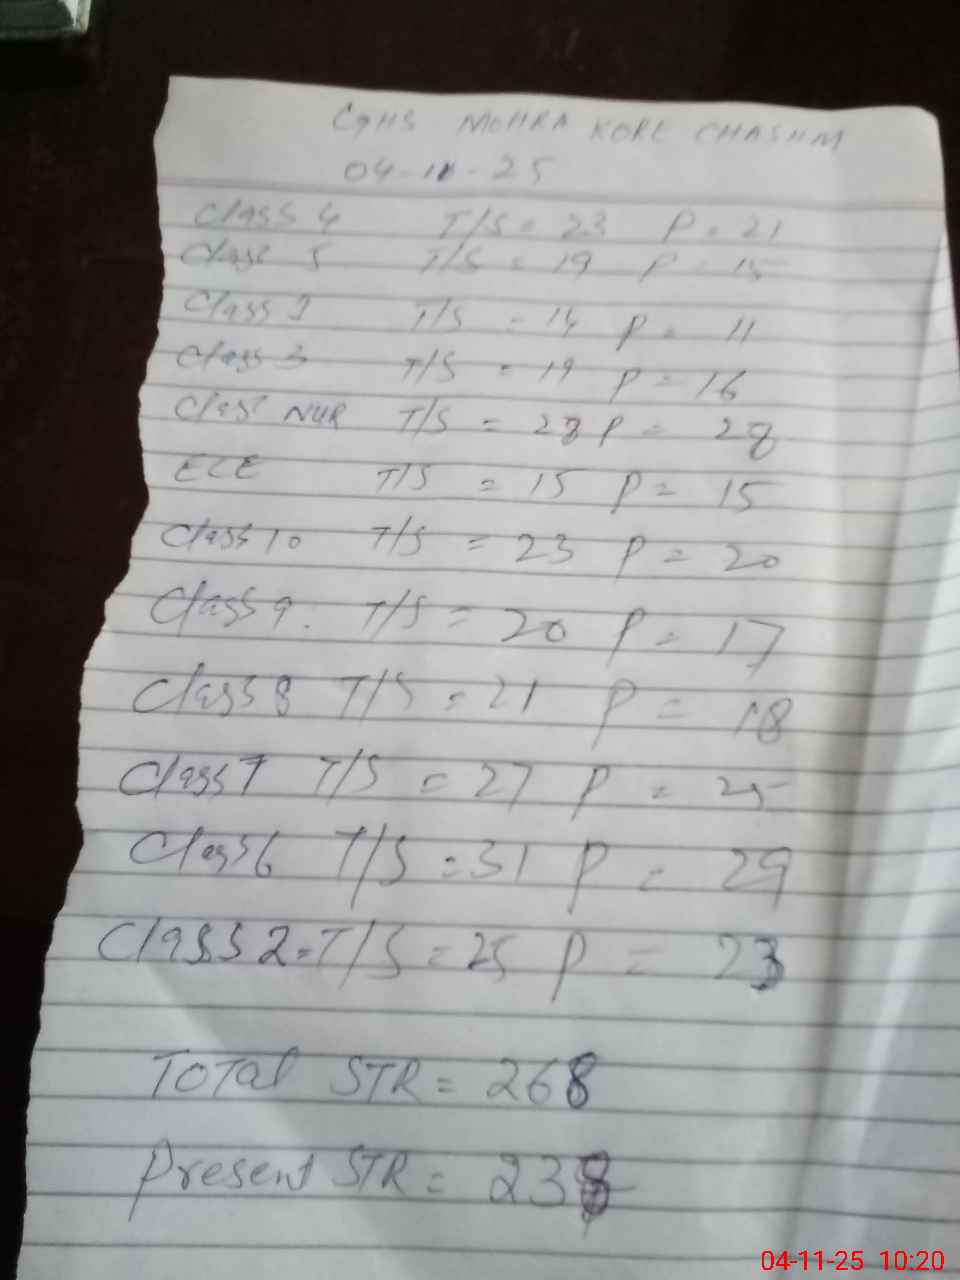 GGHS MOHRA KORE CHASHM
04-11-25
Class 4 T/S = 23 P = 21
Class 5 T/S = 19 P = 15
Class 1 T/S = 14 P = 11
Class 3 T/S = 19 P = 16
Class NUR T/S = P = 28
ECE T/S = 15 P = 15
Class 10 T/S = 23 P = 20
Class 9. T/S = 20 P = 17
Class 8 T/S = 21 P = 18
Class 7 T/S = 27 P = 25
Class 6 T/S = 31 P = 29
Class 2 = T/S = 25 P = 23
Total STR = 268
Present STR =
04-11-25 10:20